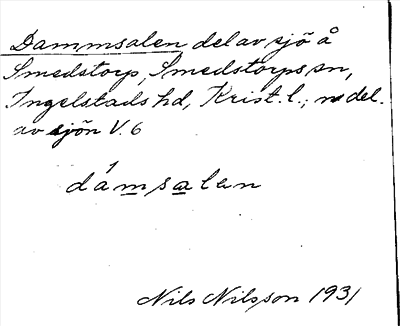 Dammsalen del av sjö å
Smedstorp, Smedstorps sn,
Ingelstads hd, Krist. l.; n del.
av sjön V. 6
dámsalen
Nils Nilsson 1931